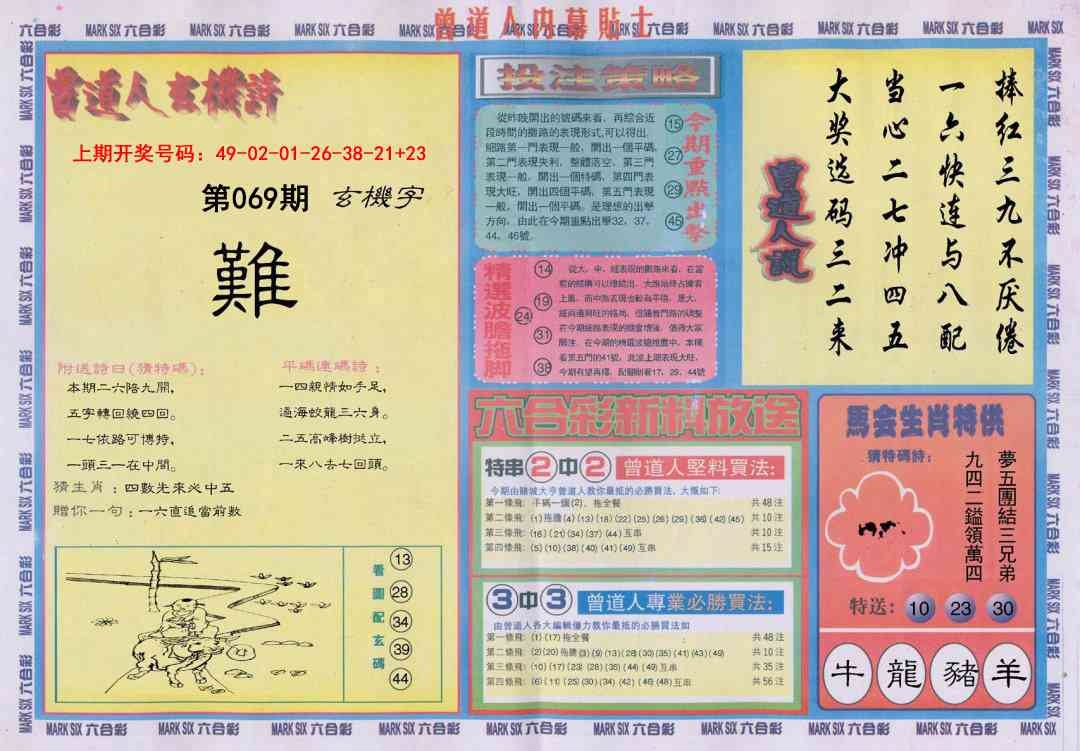 曾道人内幕貼士
MARK SIX 六合彩 MARK SIX 六合彩 MARK SIX 六合彩 MARK SIX 六合彩
曾道人玄機詩
上期开奖号码：49-02-01-26-38-21+23
第069期 玄機字
難
附送詩曰(猜特碼)：
本期二六陪九開，
五字轉回繞四回。
一七依路可博特，
一頭三一在中間。
平碼連碼詩：
一四親情如手足，
過海蛟龍三六身。
二五高峰樹挺立，
一來八去七回頭。
猜生肖：四數先來必中五
贈你一句：一六直追當前數
看圖配玄碼
13
28
34
39
44
投注策略
從昨晚開出的號碼來看，再綜合近
段時間的攤路的表現形式，可以得出，
細路第一門表現一般，開出一個平碼，
第二門表現失利，整體落空，第三門
表現一般，開出一個特碼，第四門表
現大旺，開出四個平碼，第五門表現
一般，開出一個平碼。是理想的出擊
方向，由此在今期重點出擊32、37、
44、46號。
今期重點出擊
15
27
29
45
精選波膽拖脚
14
19
24
31
38
今期有望再爆，配腳則看17、29、44號
六合彩新料放送
特串2中2 曾道人堅料買法：
今期由賭城大亨曾道人教你最抵的必勝買法，大概如下：
第一條飛：平碼一個(2)，拖全餐 共48注
第二條飛：(1)拖膽(4)(13)(18)(22)(25)(26)(29)(36)(42)(45) 共10注
第三條飛：(16)(21)(34)(37)(44)互串 共10注
第四條飛：(5)(10)(38)(40)(41)(49)互串 共15注
3中3 曾道人專業必勝買法：
由曾道人各大編輯傾力教你最抵的必勝買法如
第一條飛：(1)(17)拖全餐 共48注
第二條飛：(2)(20)拖膽(3)(9)(13)(28)(30)(35)(41)(43)(49) 共10注
第三條飛：(10)(17)(23)(28)(36)(44)(49)互串 共35注
第四條飛：(6)(11)(25)(30)(34)(42)(46)(48)互串 共56注
曾道人說
捧红三九不厌倦
一六快连与八配
当心二七冲四五
大奖选码三二来
馬会生肖特供
猜特碼詩：
夢五團結三兄弟
九四二鎰領萬四
特送：10 23 30
牛 龍 豬 羊
MARK SIX 六合彩 MARK SIX 六合彩 MARK SIX 六合彩 MARK SIX 六合彩